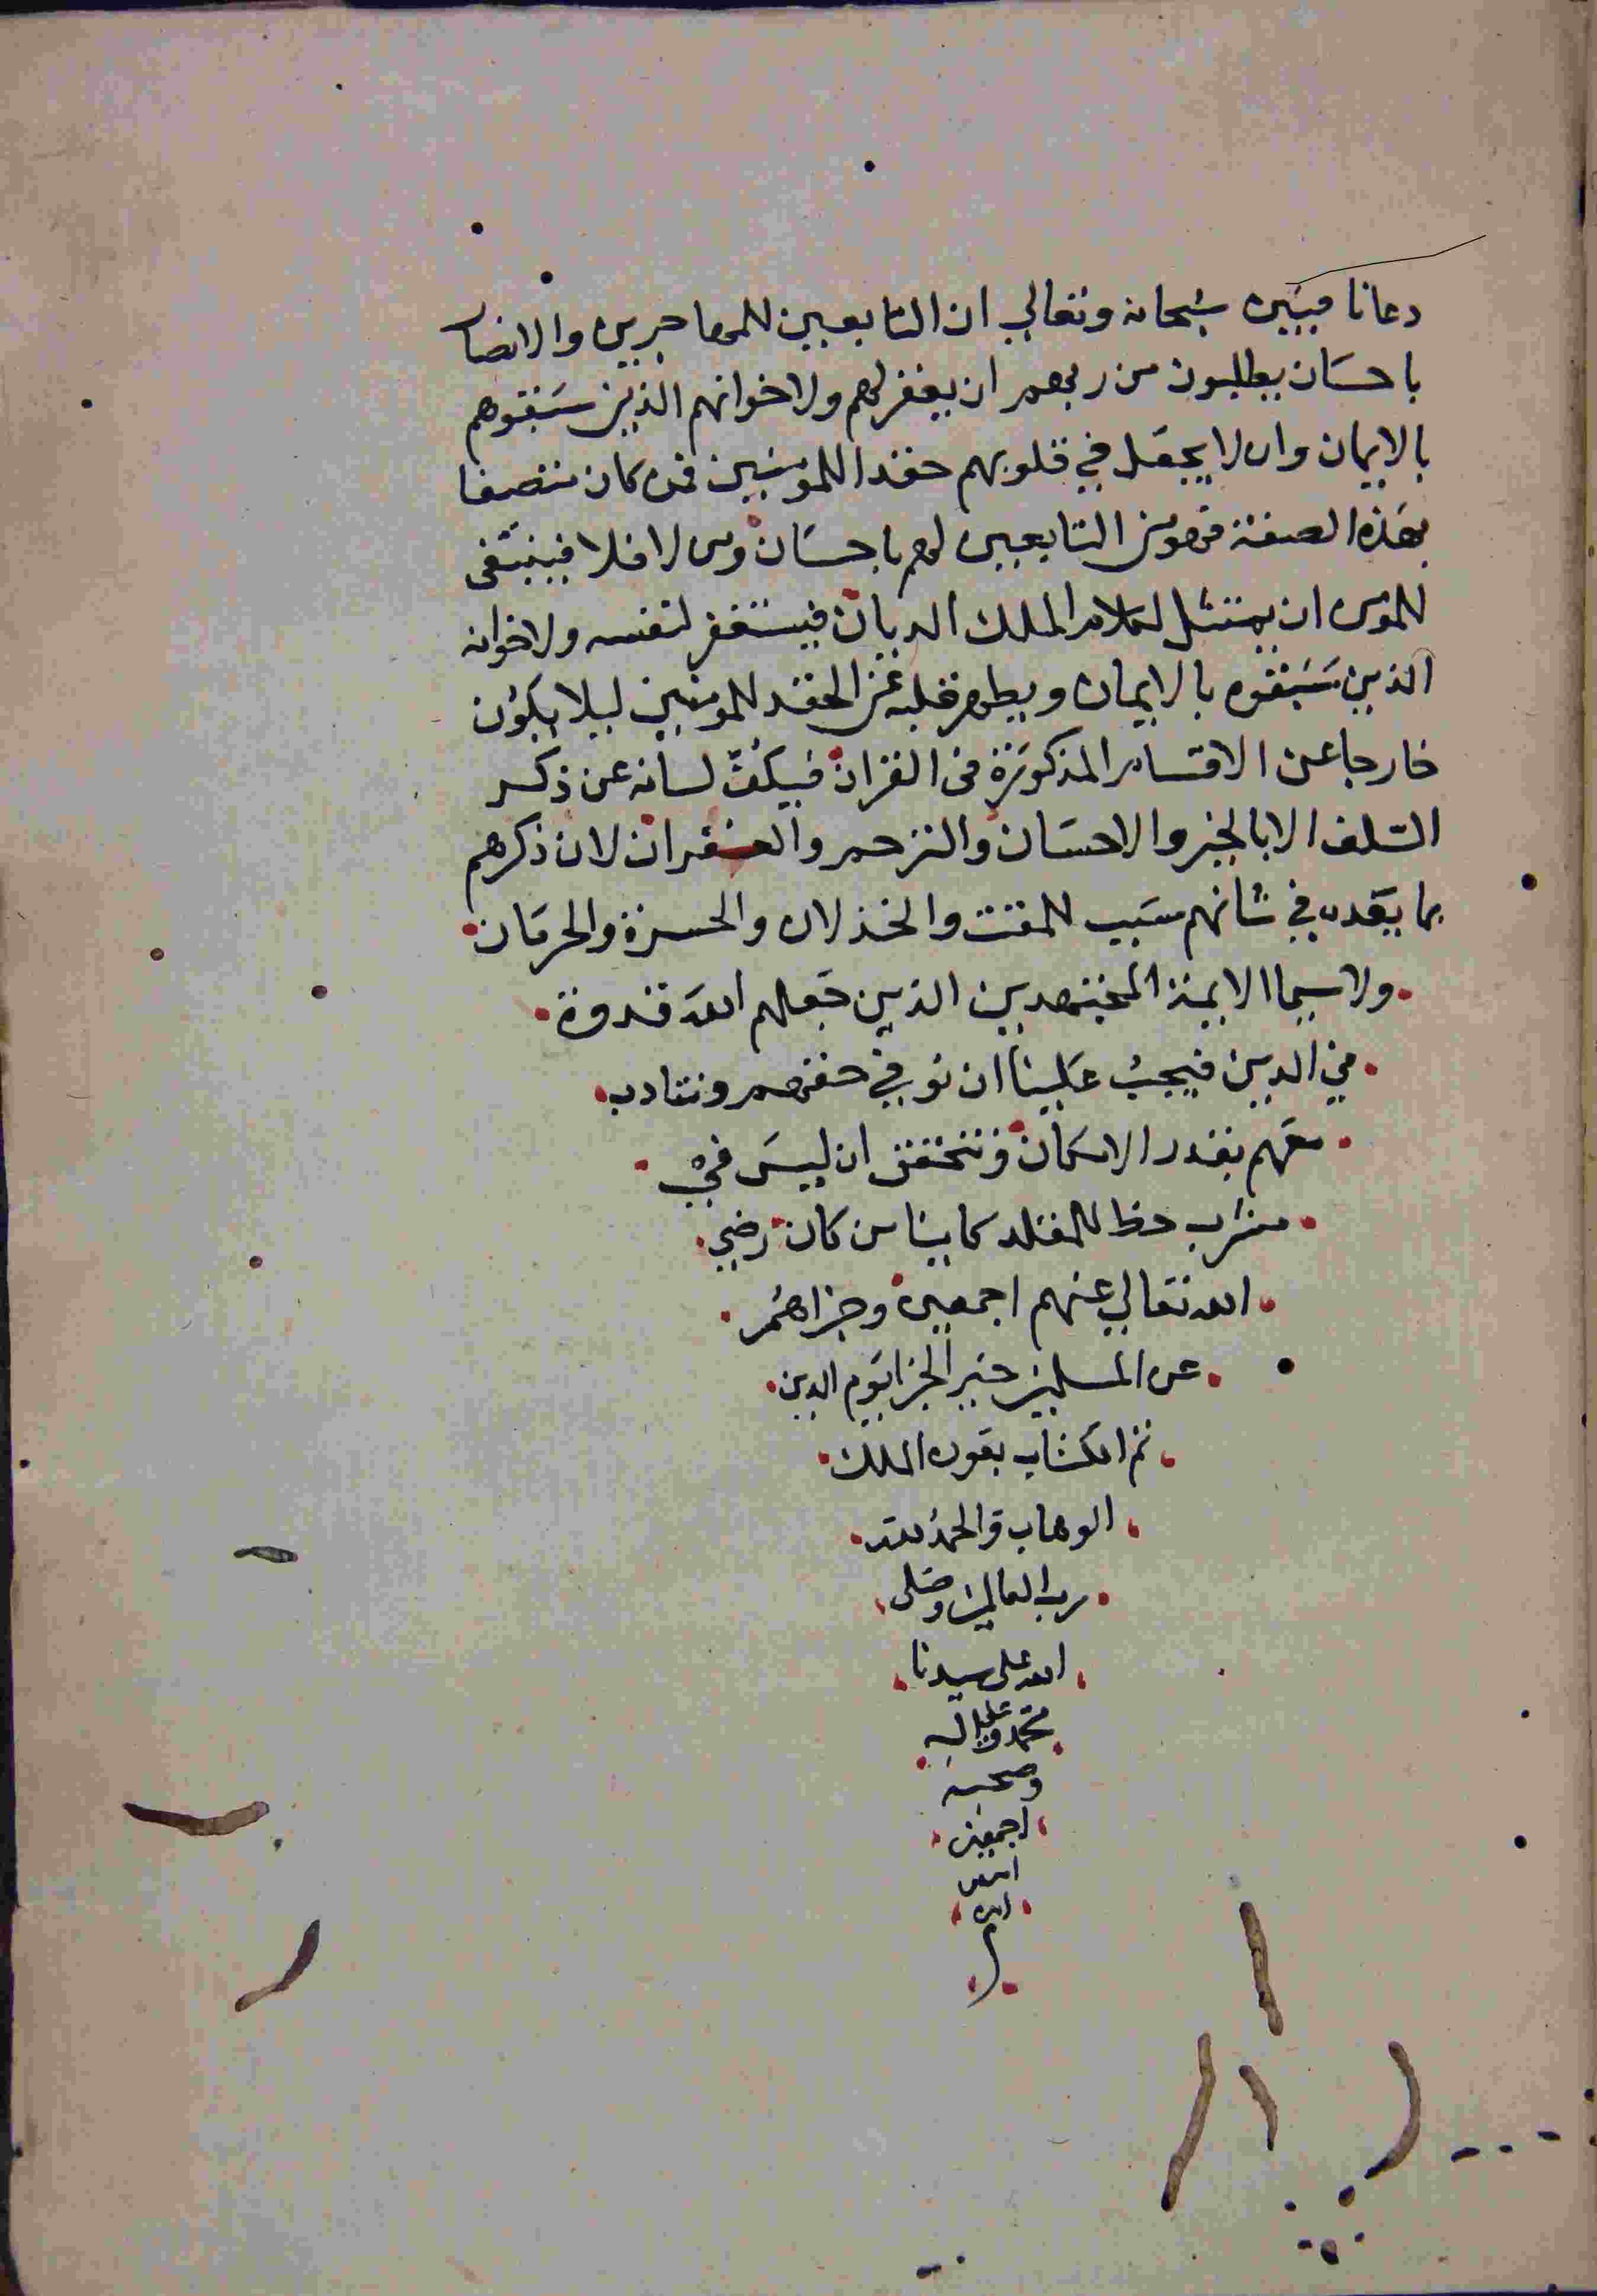 دعانا فبين سبحانه وتعالي ان التابعين للمهاجرين والانصار
باحسان يطلبون من ربهم ان يغفر لهم ولاخوانهم الذين سبقوهم
بالايمان وان لا يجعل في قلوبهم حقدا للمومنين فمن كان متصفا
بهذه الصفة فهو من التابعين لهم باحسان ومن لا فلا فينبغى
للمومن ان يمتثل لكلام الملك الديان فيستغفر لنفسه ولاخوانه
الذين سبقوه بالايمان ويطهر قلبه عن الحقد للمومنين ليلا يكون
خارجا عن الاقسام المذكورة فى القران فيكفّ لسانه عن ذكر
السلف الا بالخير والاحسان والترحم والغفران لان ذكرهم
بما يقدح في شانهم سبب للمقت والخذلان والحسرة والحرمان
ولا سيما الايمة المجتهدين الذين جعلهم الله قدوة
في الدين فيجب علينا ان نوفي حقهم ونتادب
معهم بقدر الامكان ونتحقق ان ليس في
مشرب حظ للمقلد كاينا من كان رضي
الله تعالي عنهم اجمعين وجزاهم
عن المسلمين خير الجزا يوم الدين
تم الكتاب بعون الملك
الوهاب والحمد لله
رب العالمين وصلى
الله على سيدنا
محمد وعلى اله
وصحبه
اجمعين
امين